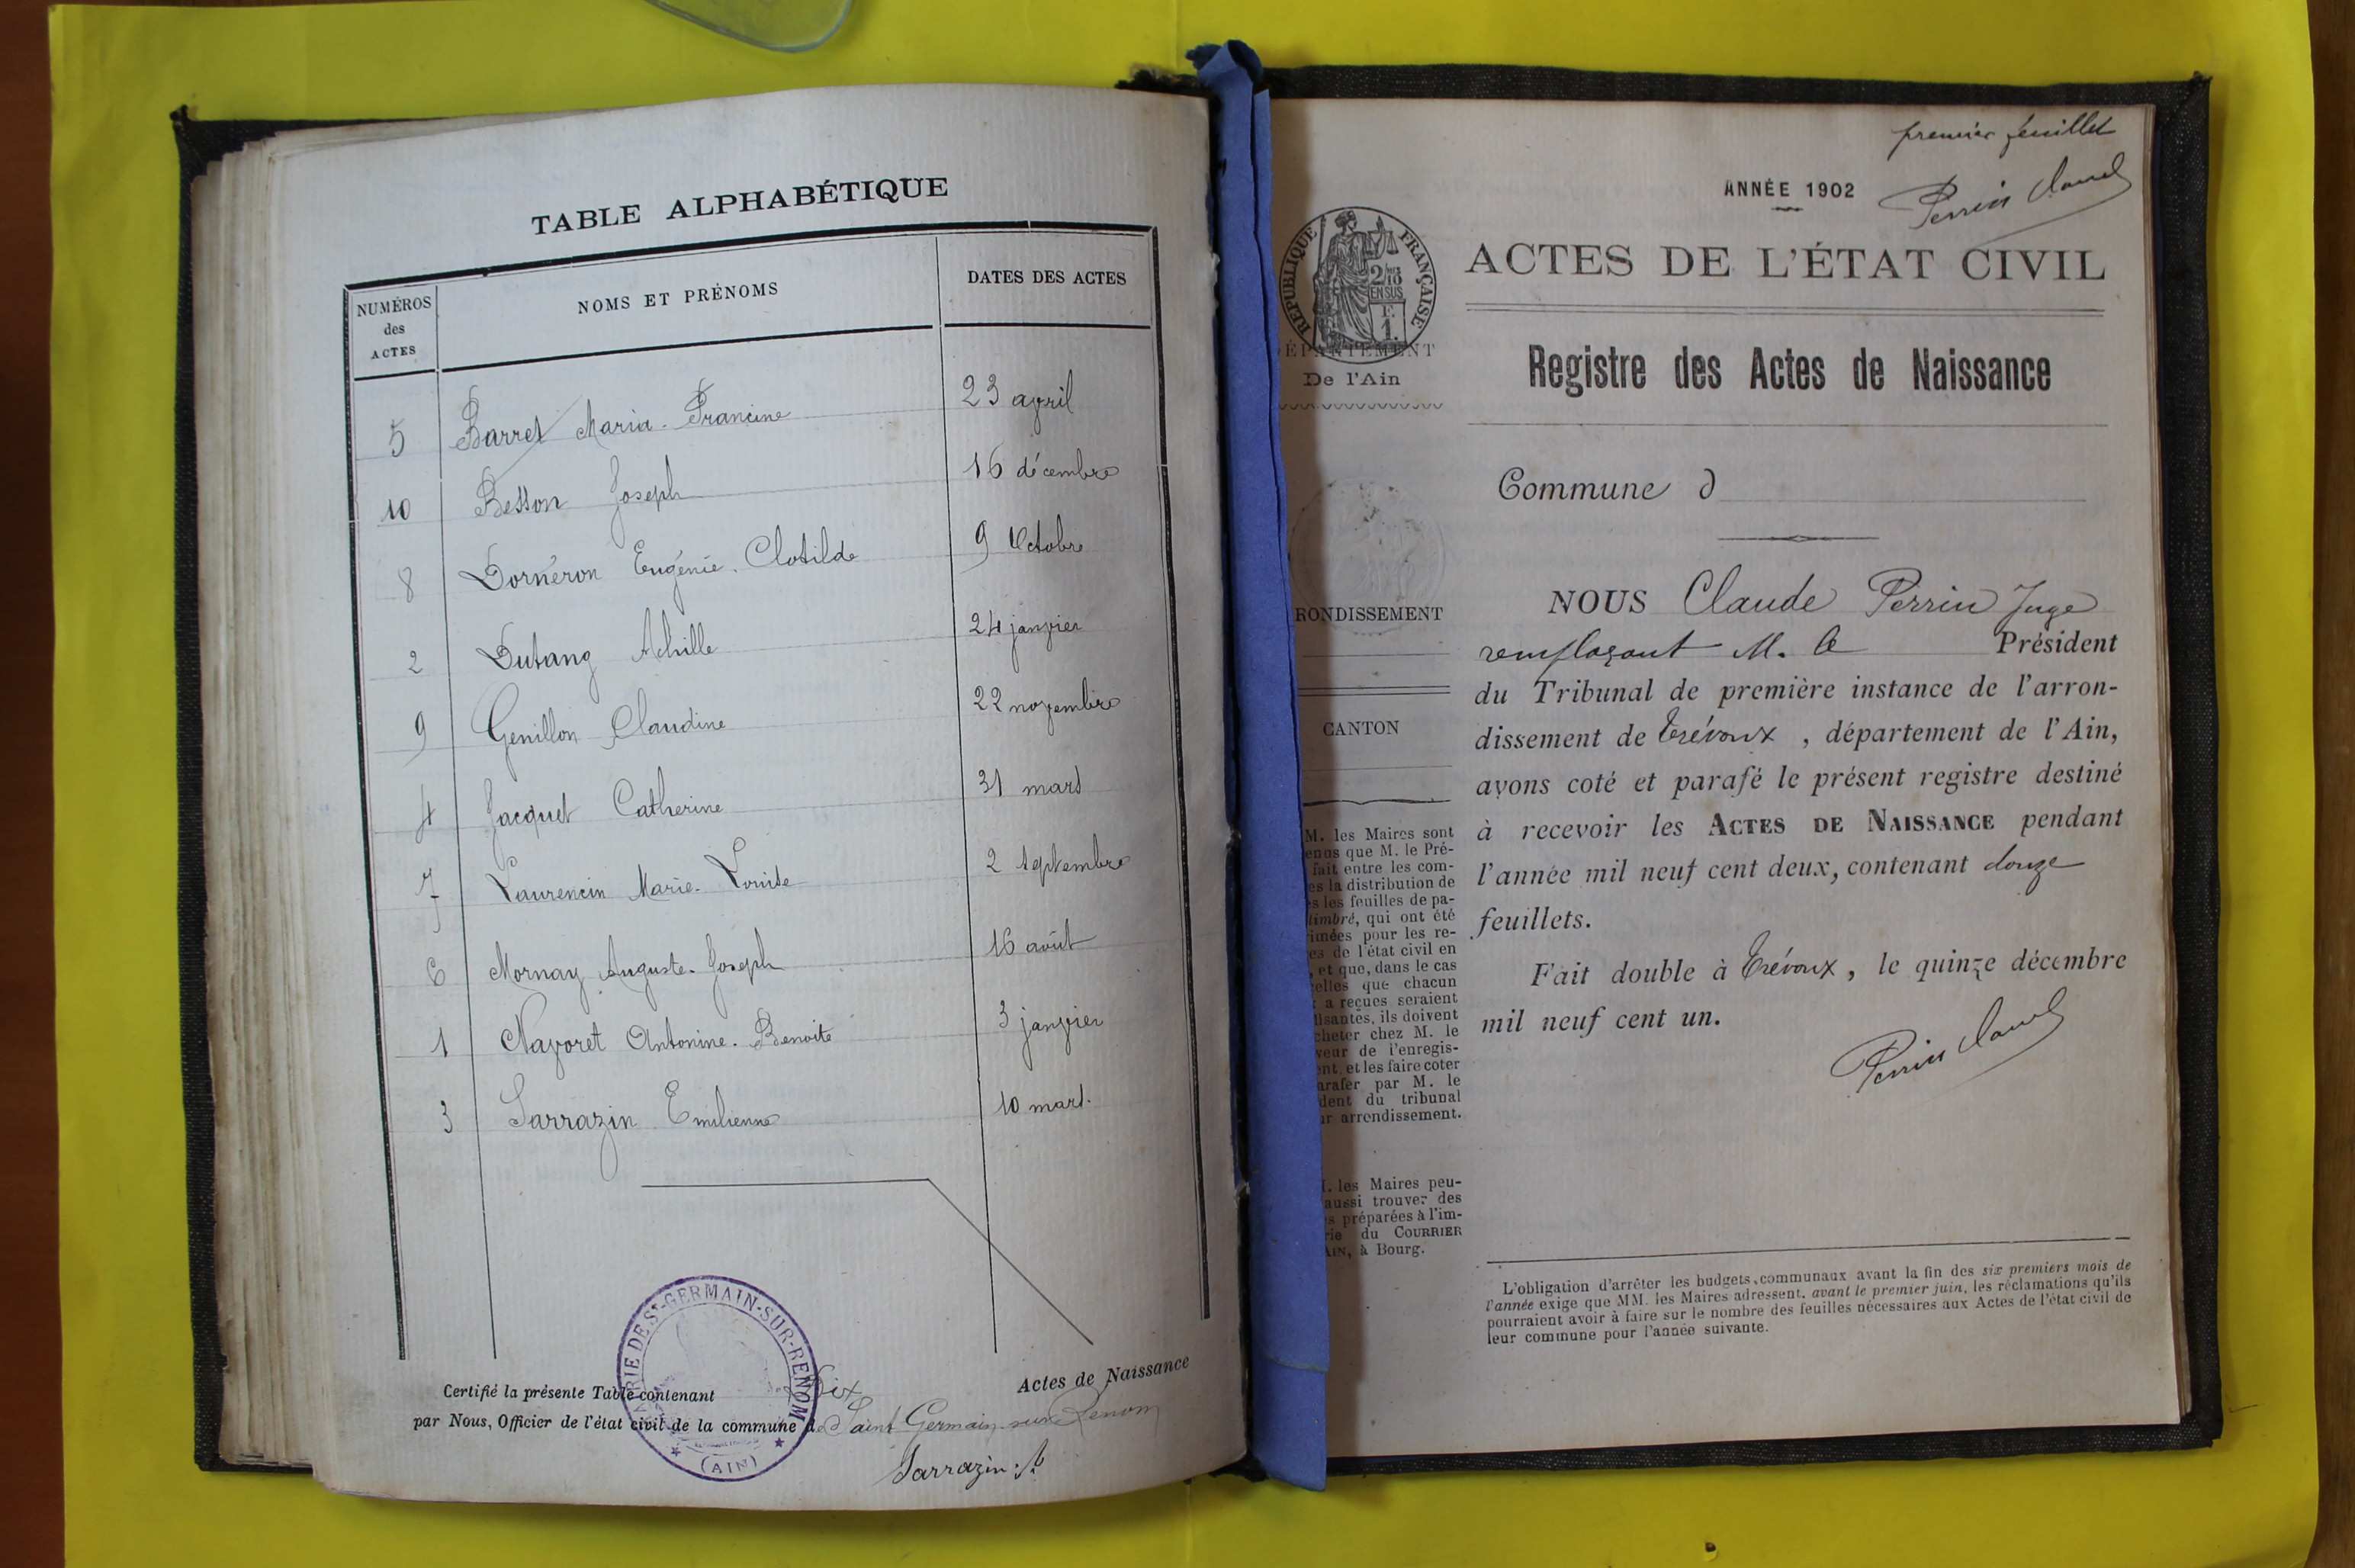 TABLE ALPHABÉTIQUE
NUMÉROS
des
ACTES
NOMS ET PRÉNOMS
DATES DES ACTES
5 Barret Maria. Francine 23 avril
10 Besson Joseph 16 décembre
8 Dornéron Eugénie. Clotilde 9 Octobre
2 Dutang Achille 24 janvier
9 Genillon Claudine 22 novembre
4 Jacquet Catherine 31 mars
7 Laurencin Marie. Louise 2 septembre
6 Mornay Auguste. Joseph 16 août
1 Nayoret Antonine. Benoite 3 janvier
3 Sarrazin Emilienne 10 mars.
MAIRIE DE ST-GERMAIN-SUR-RENOM
(AIN)
Certifié la présente Table contenant Dix Actes de Naissance
par Nous, Officier de l'état civil de la commune de Saint Germain sur Renom
Sarrazin
premier feuillet
ANNÉE 1902
Perrin Claude
RÉPUBLIQUE FRANÇAISE
2/10
EN SUS
F.
1.
DÉPARTEMENT
De l'Ain
ACTES DE L'ÉTAT CIVIL
Registre des Actes de Naissance
Commune d
RONDISSEMENT
CANTON
NOUS Claude Perrin Juge
remplaçant M. le Président
du Tribunal de première instance de l'arron-
dissement de Trévoux, département de l'Ain,
avons coté et parafé le présent registre destiné
à recevoir les ACTES DE NAISSANCE pendant
l'année mil neuf cent deux, contenant douze
feuillets.
Fait double à Trévoux, le quinze décembre
mil neuf cent un.
Perrin Claude
M. les Maires sont
que M. le Pré-
fait entre les com-
la distribution de
les feuilles de pa-
timbré, qui ont été
pour les re-
de l'état civil en
et que, dans le cas
que chacun
a reçues seraient
ils doivent
chez M. le
de l'enregis-
et les faire coter
par M. le
du tribunal
arrondissement.
les Maires peu-
aussi trouver des
préparées à l'im-
du COURRIER
AIN, à Bourg.
L'obligation d'arrêter les budgets communaux avant la fin des six premiers mois de
l'année exige que MM. les Maires adressent, avant le premier juin, les réclamations qu'ils
pourraient avoir à faire sur le nombre des feuilles nécessaires aux Actes de l'état civil de
leur commune pour l'année suivante.